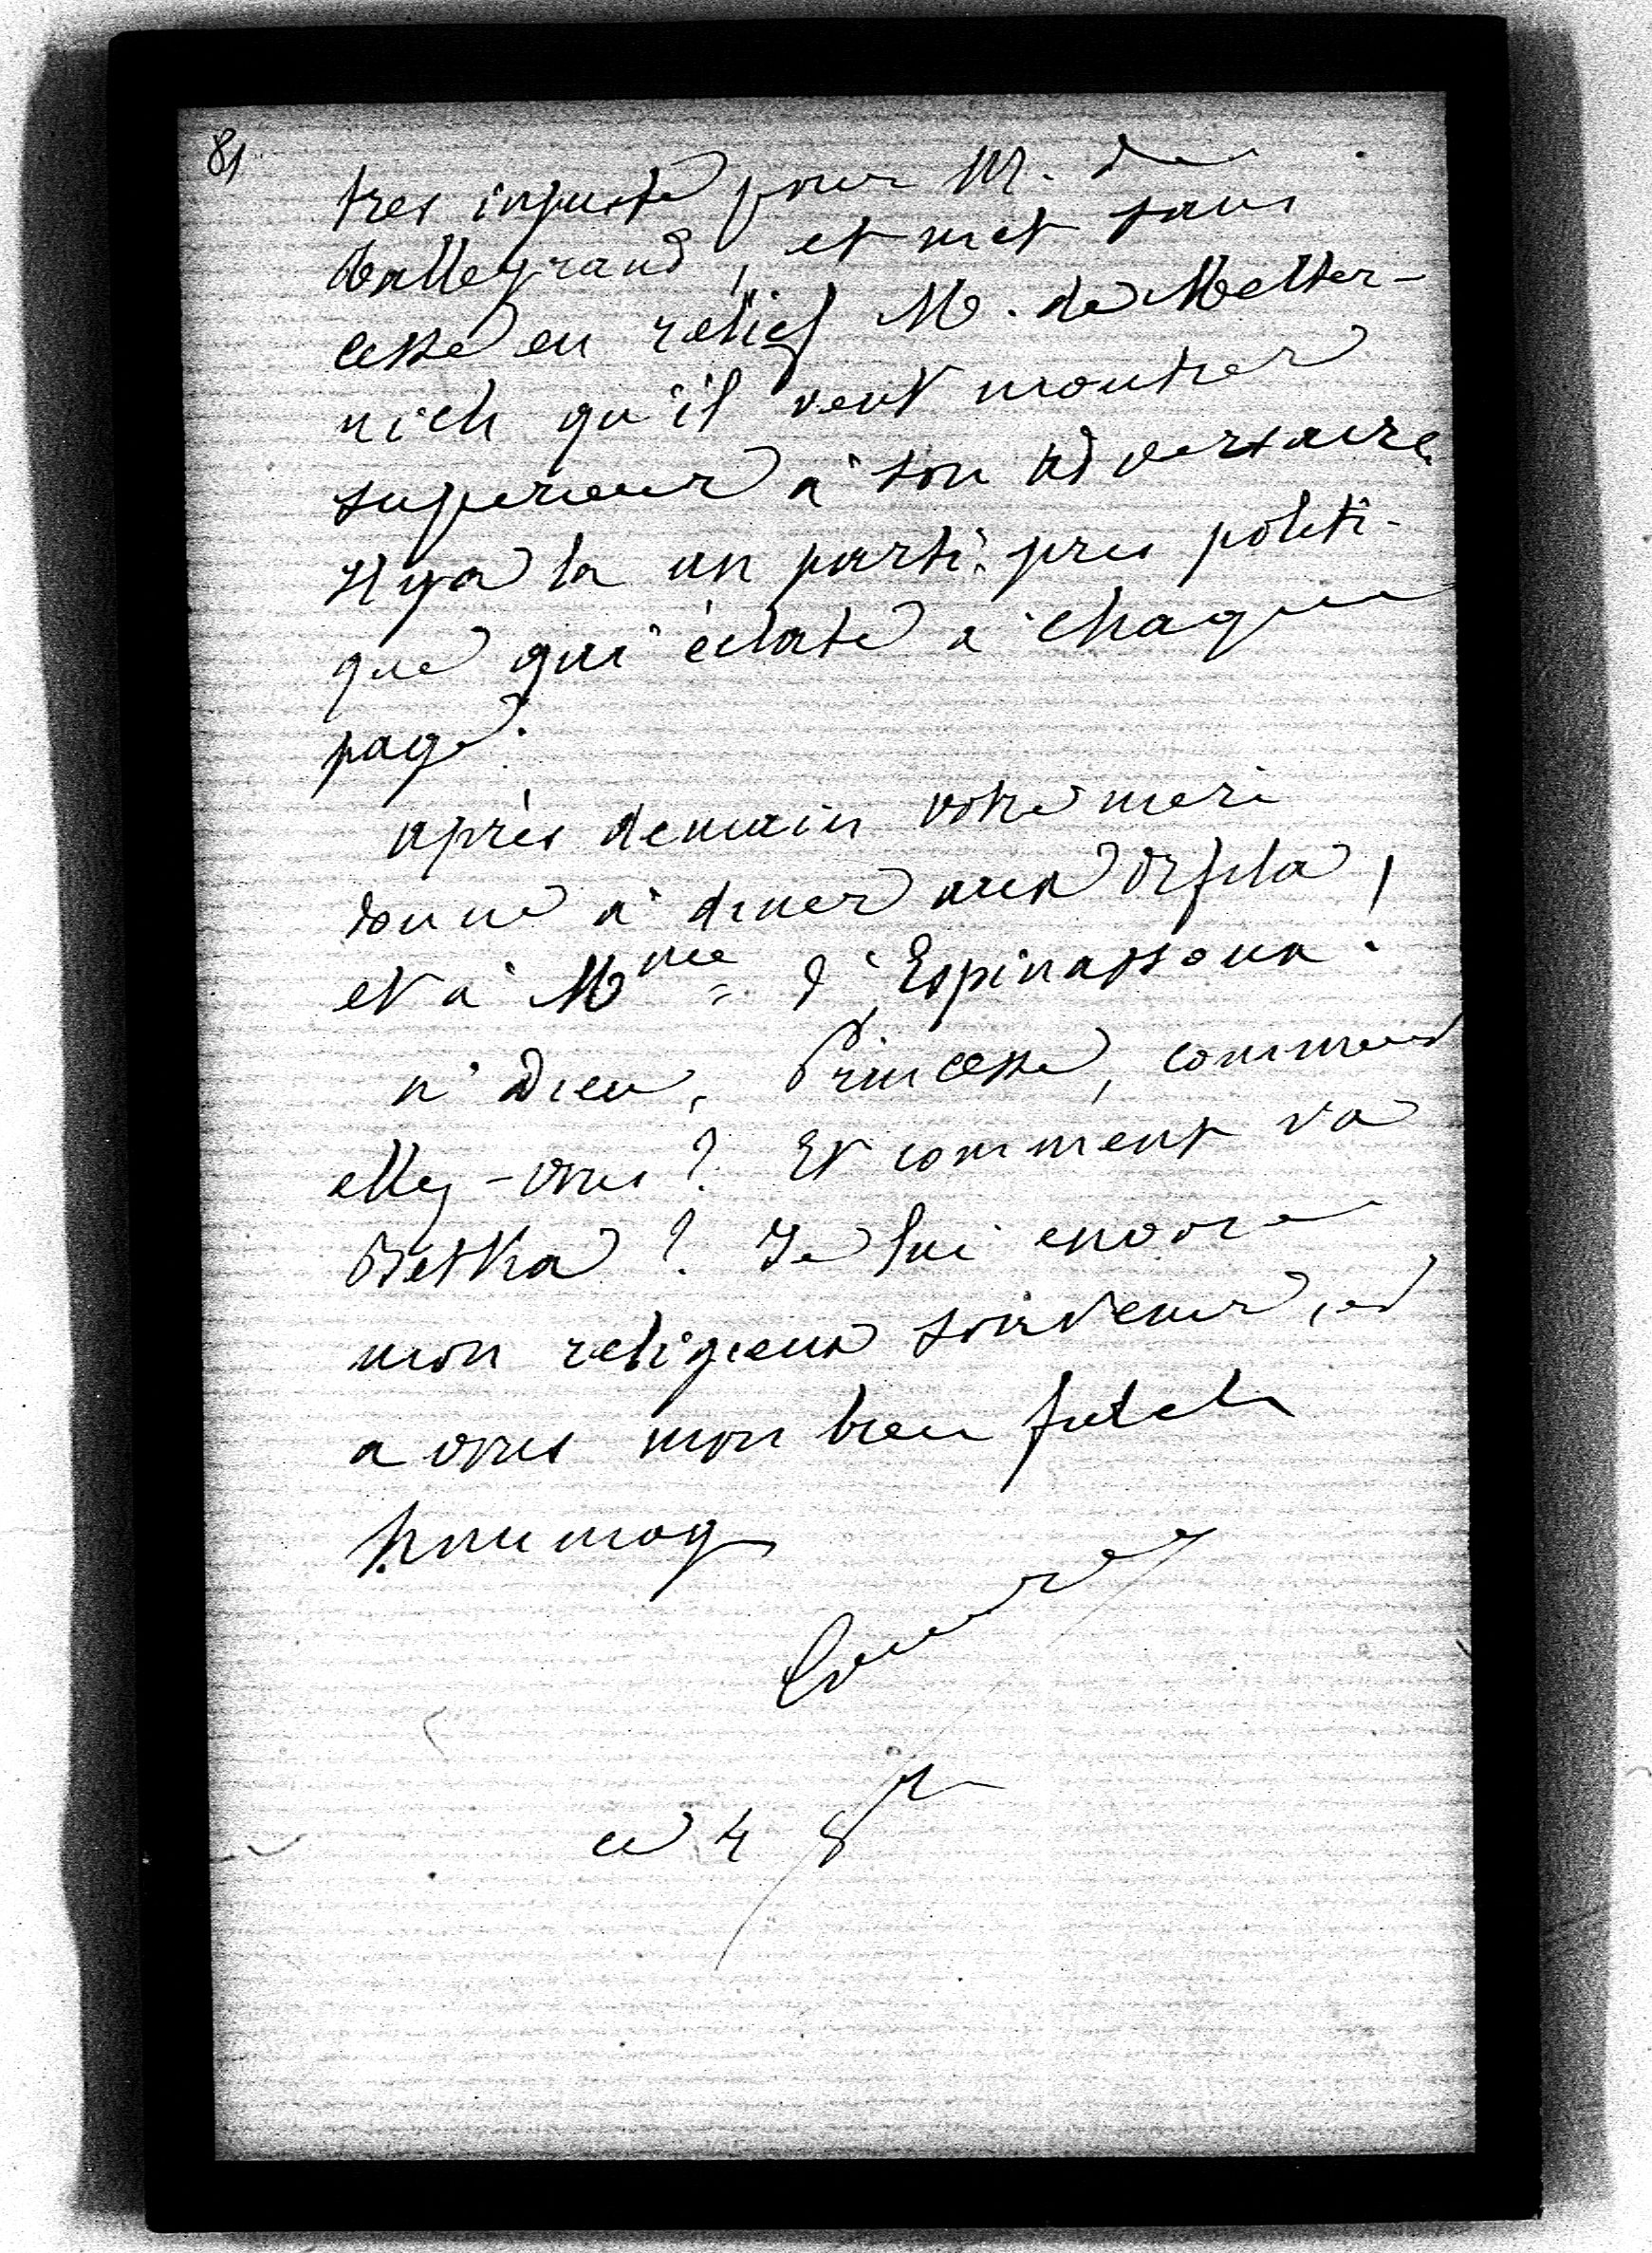 81
tres injuste pour M. de
Talleyrand, et met sans
cesse en relief M. de Metter-
nich qu'il veut montrer
superieur à son adversaire.
Il y a la un parti-pris politi-
que qui éclate a chaque
page.
après demain votre mere
donne a diner aux Orfila,
et à Mme d'Espinassoux.
a Dieu, Princesse, comment
allez-vous ? Et comment va
Betka ? Je lui envoie
mon religieux souvenir, et
a vous mon bien fidele
hommage
ce 4 8bre